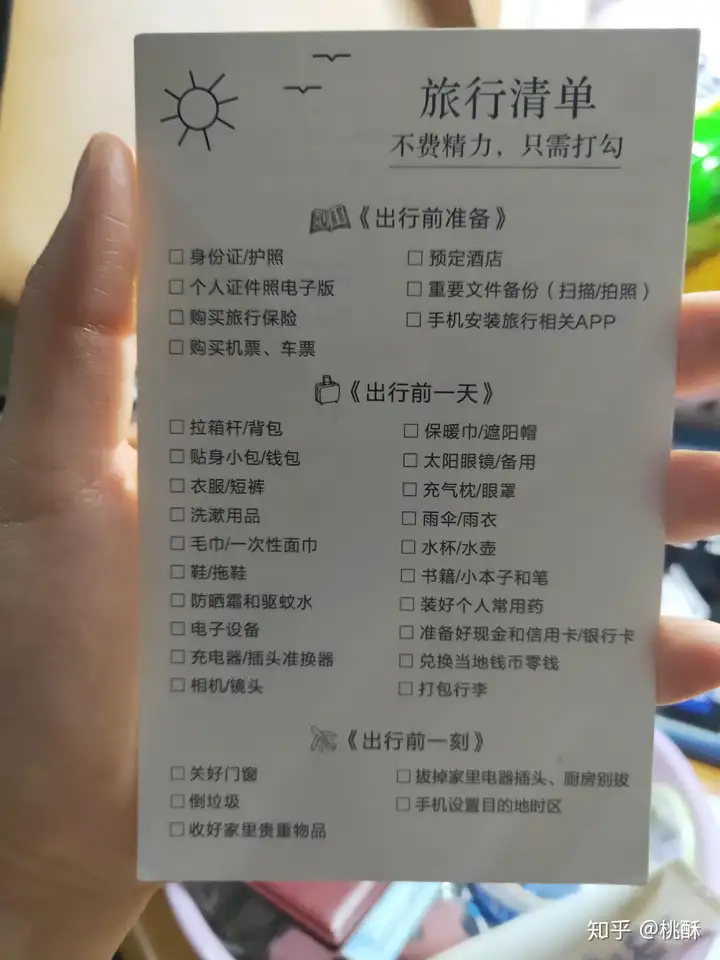 旅行清单
不费精力，只需打勾
《出行前准备》
□ 身份证/护照
□ 个人证件照电子版
□ 购买旅行保险
□ 购买机票、车票
□ 预定酒店
□ 重要文件备份（扫描/拍照）
□ 手机安装旅行相关APP
《出行前一天》
□ 拉箱杆/背包
□ 贴身小包/钱包
□ 衣服/短裤
□ 洗漱用品
□ 毛巾/一次性面巾
□ 鞋/拖鞋
□ 防晒霜和驱蚊水
□ 电子设备
□ 充电器/插头准换器
□ 相机/镜头
□ 保暖巾/遮阳帽
□ 太阳眼镜/备用
□ 充气枕/眼罩
□ 雨伞/雨衣
□ 水杯/水壶
□ 书籍/小本子和笔
□ 装好个人常用药
□ 准备好现金和信用卡/银行卡
□ 兑换当地钱币零钱
□ 打包行李
《出行前一刻》
□ 关好门窗
□ 倒垃圾
□ 收好家里贵重物品
□ 拔掉家里电器插头、厨房别拔
□ 手机设置目的地时区
知乎 @桃酥